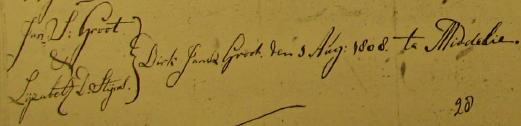 Jan S: Groot
&
Lijsabeth D: Stijns.
Dirk Jansz Groot. den 3 Aug: 1808. te Middelie.
28